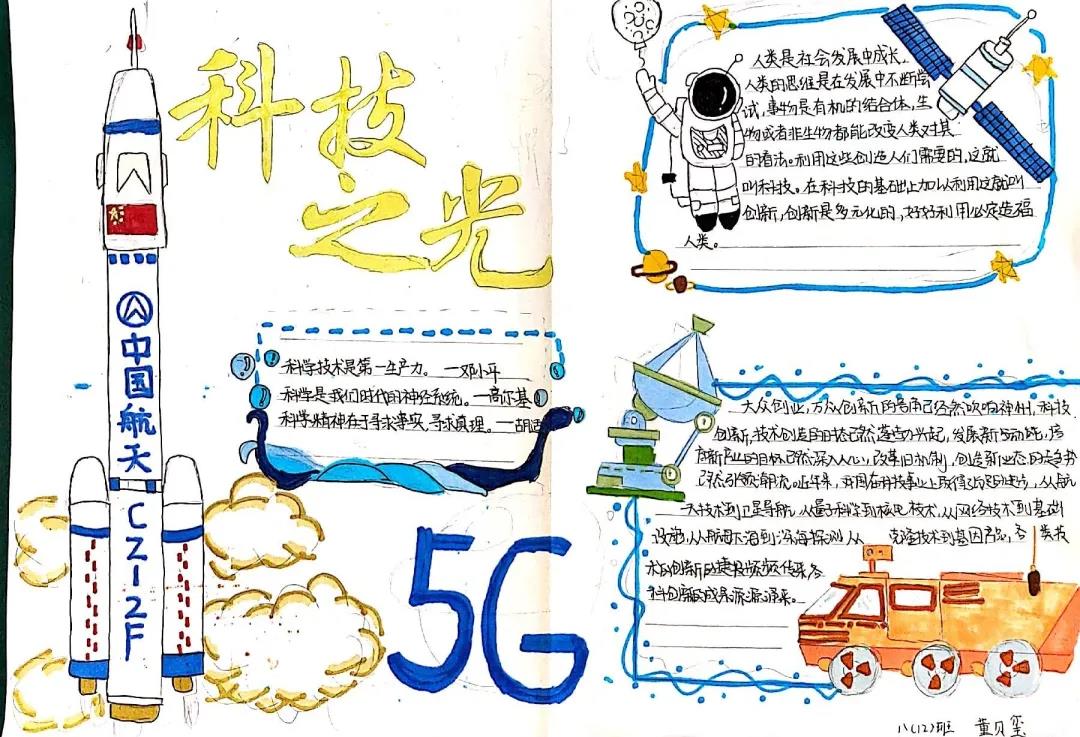 科技
之光
中国航天
CZ-2F
科学技术是第一生产力。 —邓小平
科学是我们时代的神经系统。—高尔基
科学精神在于寻求事实,寻求真理。—胡适
5G
人类是社会发展中成长,
人类的思维是在发展中不断尝
试,事物是有机的结合体,生
物或者非生物都能改变人类对其
的看法。利用这些创造人们需要的,这就
叫科技。在科技的基础上加以利用这就叫
创新,创新是多元化的,好好利用必定造福
人类。
大众创业,万众创新的号角已经然吹响神州,科技
创新,技术创造的日状已然蓬勃兴起,发展新动能,培
育新产业的目标已然深入人心,改革旧机制,创造新业态的走势
已然引领潮流。近年来,我国在科技事业上取得了长足进步,从航
天技术到卫星导航,从量子科学到核电技术,从网络技术到基础
设施,从航海下海到深海探测,从 克隆技术到基因 各类技
术的创新的捷报频频传来,各
科创新成果源源 来。
八(12)班 董贝玺